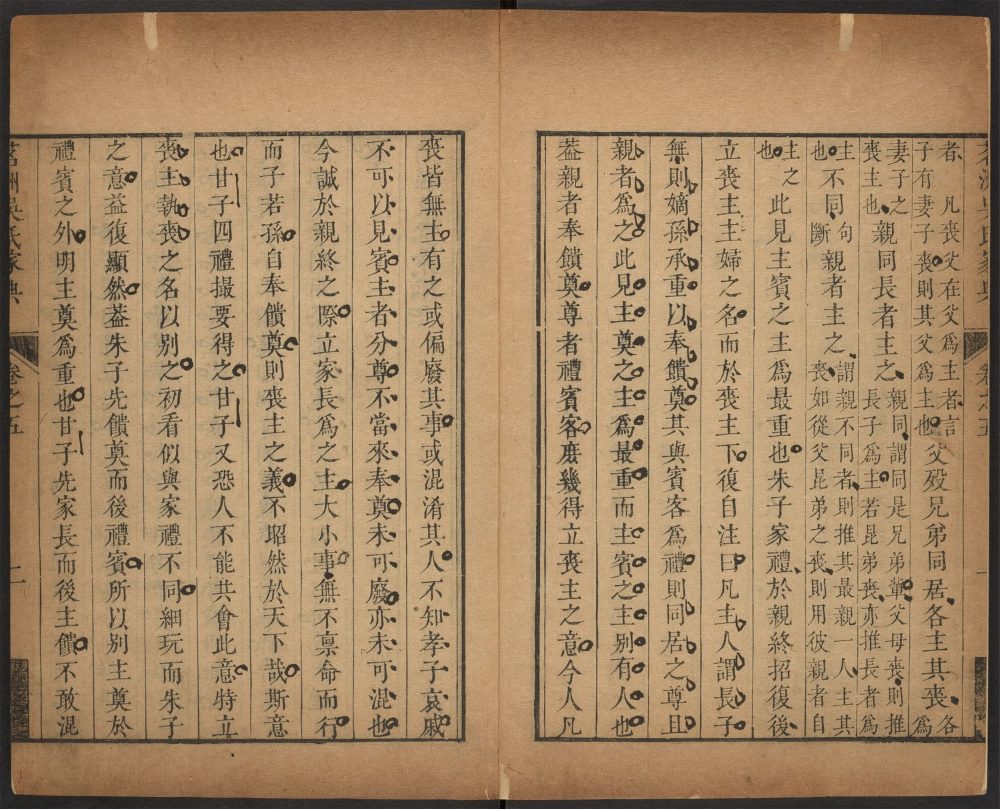 茗洲吳氏家典 卷之五 一
者 凡喪父在父為主者言
子有妻子喪則其父為主也父歿兄弟同居各主其喪各
為
妻子之
喪主也親同長者主之親同謂同是兄弟輩父母喪則推
長子為主若昆弟喪亦推長者為
主
也不同句
斷親者主之謂親不同者則推其最親一人主其
喪如從父昆弟之喪則用彼親者自
主之
也此見主賓之主為最重也朱子家禮於親終招復後
立喪主主婦之名而於喪主下復自注曰凡主人謂長子
無則嫡孫承重以奉饋奠其與賓客為禮則同居之尊且
親者為之此見主奠之主為最重而主賓之主別有人也
葢親者奉饋奠尊者禮賓客庶幾得立喪主之意今人凡
喪皆無主有之或偏廢其事或混淆其人不知孝子哀戚
不可以見賓主者分尊不當來奉奠未可廢亦未可混也
今誠於親終之際立家長為之主大小事無不禀命而行
而子若孫自奉饋奠則喪主之義不昭然於天下哉斯意
也甘子四禮撮要得之甘子又恐人不能共會此意特立
喪主執喪之名以別之初看似與家禮不同細玩而朱子
之意益復顯然葢朱子先饋奠而後禮賓所以別主奠於
禮賓之外明主奠為重也甘子先家長而後主饋不敢混
茗洲吳氏家典 卷之五 二